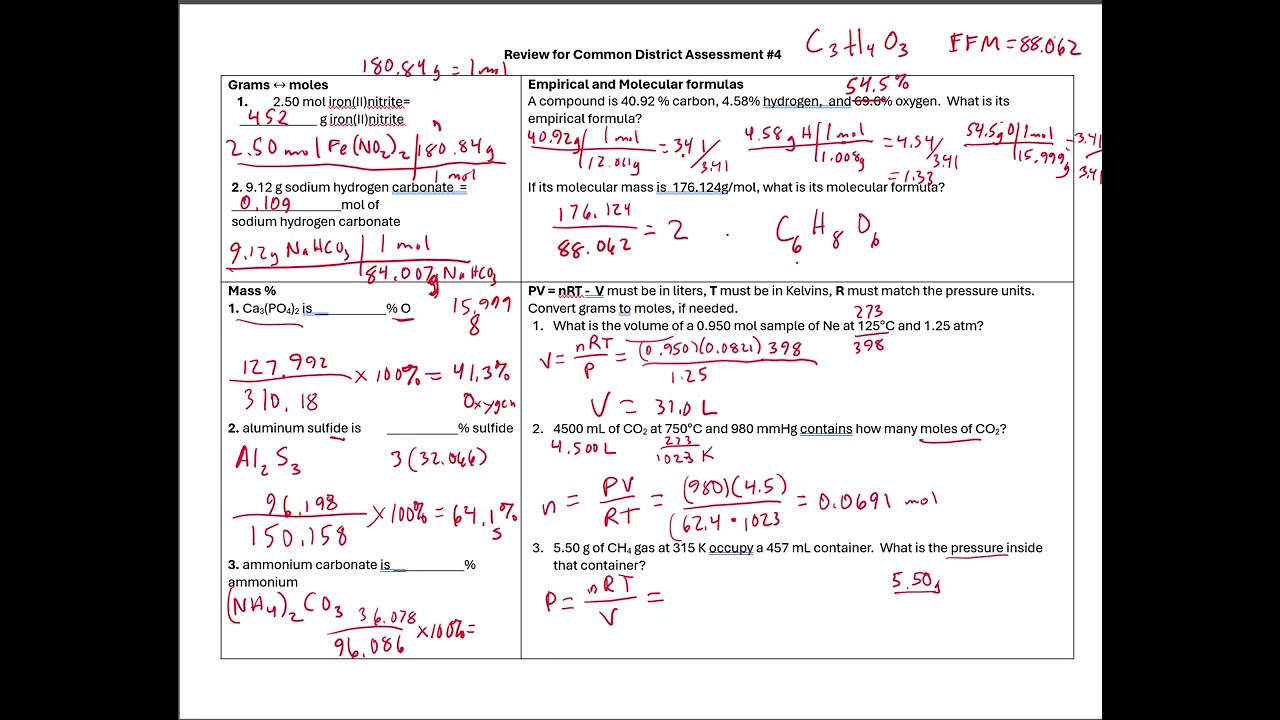 C3H4O3 EFM = 88.062
Review for Common District Assessment #4
180.84g = 1 mol
Grams ↔ moles
1. 2.50 mol iron(II)nitrite=
452 g iron(II)nitrite
2.50 mol Fe(NO2)2 | 180.84g
1 mol
2. 9.12 g sodium hydrogen carbonate =
0.109 mol of
sodium hydrogen carbonate
9.12g NaHCO3 | 1 mol
84.007g NaHCO3
Empirical and Molecular formulas
54.5%
A compound is 40.92 % carbon, 4.58% hydrogen, and 69.6% oxygen. What is its
empirical formula?
40.92g | 1 mol = 3.41/3.41 4.58 g H | 1 mol = 4.54/3.41 54.5g O | 1 mol = 3.41
12.011g 1.008g = 1.33 15.999g 3.41
If its molecular mass is 176.124g/mol, what is its molecular formula?
176.124
88.062 = 2 C6H8O6
Mass %
1. Ca3(PO4)2 is ________% O 15.999
8
127.992
310.18 x 100% = 41.3%
Oxygen
2. aluminum sulfide is ________% sulfide
Al2S3 3(32.066)
96.198
150.158 x 100% = 64.1%
S
3. ammonium carbonate is ________%
ammonium
(NH4)2CO3 36.078
96.086 x 100% =
PV = nRT - V must be in liters, T must be in Kelvins, R must match the pressure units.
Convert grams to moles, if needed.
273
1. What is the volume of a 0.950 mol sample of Ne at 125°C and 1.25 atm?
398
V = nRT/P = (0.950)(0.0821) 398
1.25
V = 31.0 L
2. 4500 mL of CO2 at 750°C and 980 mmHg contains how many moles of CO2?
4.500L 273
1023 K
n = PV/RT = (980)(4.5) = 0.0691 mol
(62.4 • 1023
3. 5.50 g of CH4 gas at 315 K occupy a 457 mL container. What is the pressure inside
that container?
5.50g
P = nRT/V =